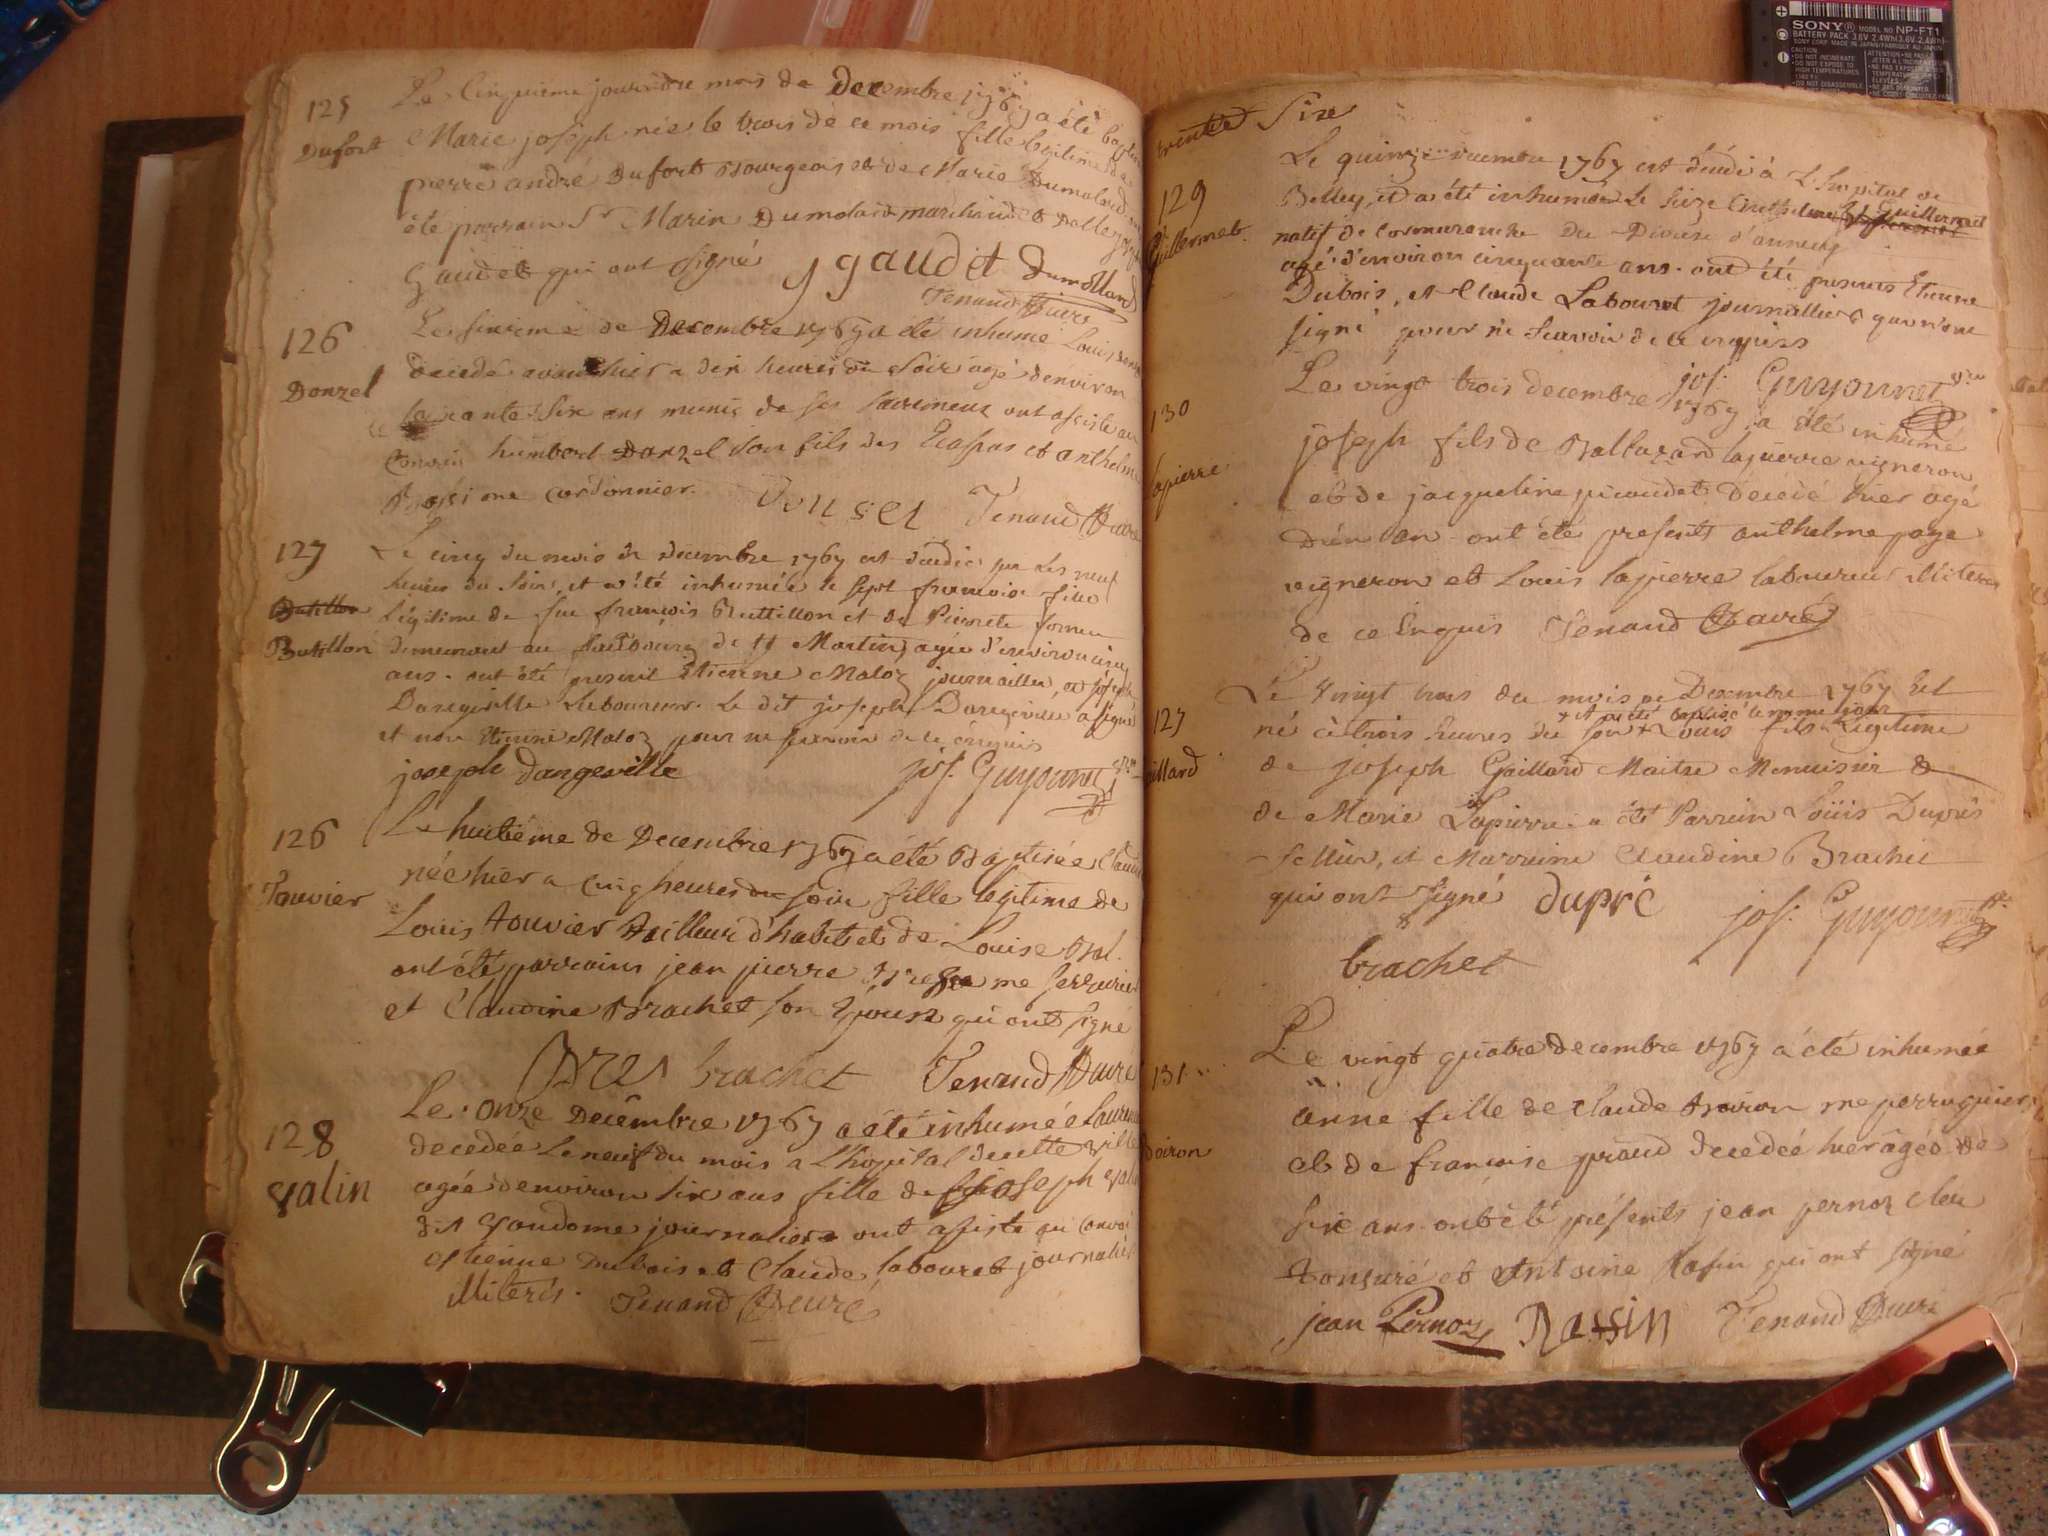 125
Dufort
Le Cinquieme jour du mois de Decembre 1767 a été
Marie joseph née le trois de ce mois fille legitime de
pierre andré Dufort Bourgeois et de Marie Dumolard
été parrain Sr Marin Dumolard marchand et
Gaudet qui ont signé gaudet Dumollard
Tenand
126
Donzel
Le sixieme de Decembre 1767 a été inhumé Louis
decedé avant hier a dix heures du Soir agé denviron
six ans munis de ses sacremens ont assisté au
Convoi humbert Donzel son fils des Ecassas et anthelme
cordonnier. Donsel Tenand
127
Butillon
Butillon
Le cinq du mois de decembre 1767 est decedée sur les neuf
heures du soir, et a été inhumée le sept françoise fille
légitime de feu françois Buttillon et de Pierrette
demeurant au fauxbourg de St Martin, agée d'environ cinq
ans. ont été present Etienne Maloz journailler, et joseph
Dangeville Laboureur. Le dit joseph Dangeville a signé
et non Etienne Maloz pour ne scavoir de ce enquis
joseph dangeville jos. Guyounet
126
Touvier
Le huitiéme de Decembre 1767 a été Baptisée Claudine
née hier a cinq heures du soir fille legitime de
Louis touvier tailleur d'habit et de Louise Bal.
ont été parrains jean pierre me serrurier
et Claudine Brachet son Epouse qui ont signé
brachet Tenand
128
valin
Le onze Decembre 1767 a été inhumée
decedée le neuf du mois a L'hopital de cette ville
agée denviron six ans fille de joseph valin
dit vandome journalier ont assisté au Convoi
etienne Dubois et Claude labouret journaliers
Illiterés. Tenand
trente Six
129
Guillermet
Le quinze decembre 1767 est décédé à L'hopital de
Belley, et a été inhumé le seize Anthelme Guillermet
natif de du Diocese d'annecy
agé d'environ cinquante ans. ont été presens Etienne
Dubois, et Claude Labouret journalliers qui n'ont
signé pour ne scavoir de ce enquis
jos: Guyounet
130
Lapierre
Le vingt trois decembre 1767 a été inhumé
joseph fils de Baltazard lapierre vigneron
et de jacqueline picaudet decedé hier agé
d'un an ont été presents anthelme page
vigneron et Louis lapierre laboureur illiterés
de ce Enquis Tenand
127
Gaillard
Le Vingt trois du mois de Decembre 1767 Est
+ et a été baptisé le meme jour
né à trois heures du soir + Louis fils Légitime
de joseph Gaillard Maitre Menuisier &
de Marie Lapierre. a été Parrain Loüis Duprés
sellier, et Marraine Claudine Brachet
qui ont signé dupré jos: Guyounet
brachet
131
Boiron
Le vingt quatre decembre 1767 a été inhumée
anne fille de Claude Boiron me perruquier
et de françoise praud decedée hier agée de
six ans. ont été présents jean pernoz clerc
tonsuré et Antoine Rassin qui ont signé
jean Pernoz Rassin Tenand
SONY® MODEL NO NP-FT1
BATTERY PACK 3.6V 2.4Wh